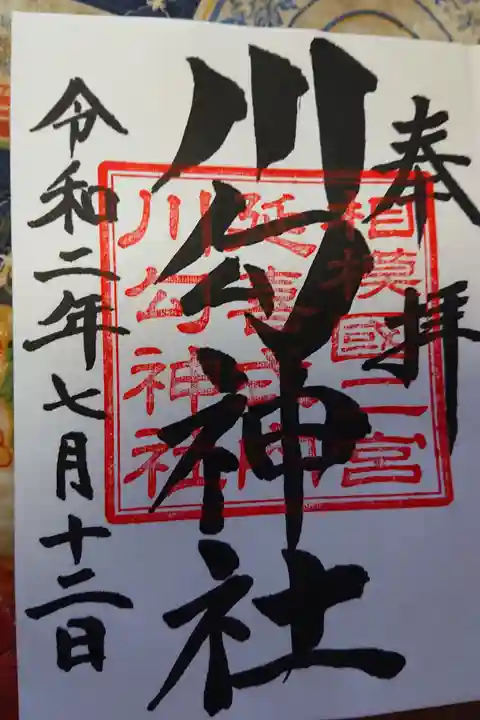 奉拝
川勾神社
相模國二宮
延喜式内
川勾神社
令和二年七月十二日